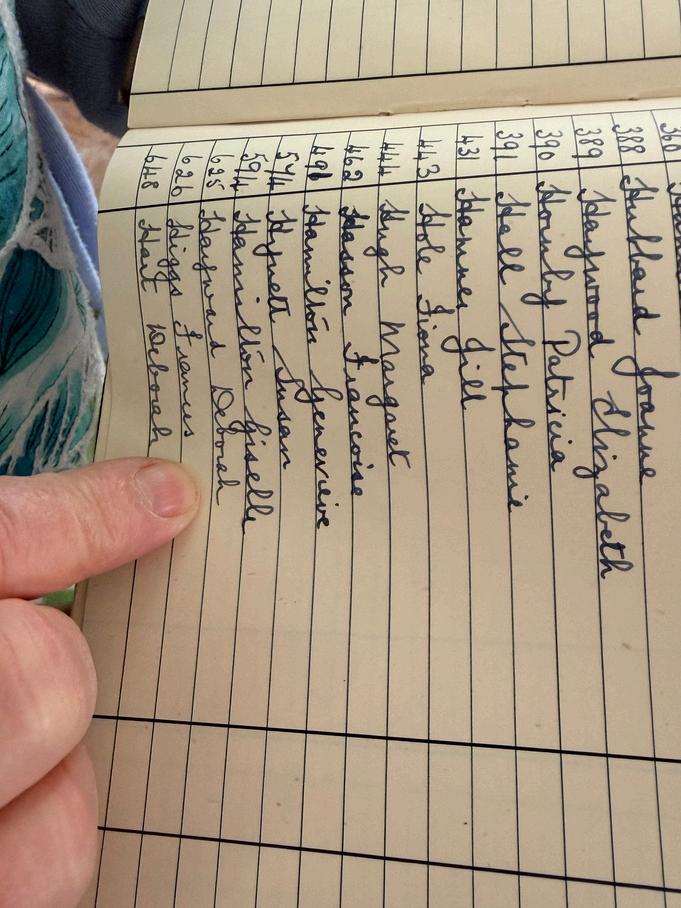 388 Hubbard Joanne
389 Haywood Elizabeth
390 Hornby Patricia
391 Hall Stephanie
431 Hammer Jill
443 Hole Fiona
444 Hugh Margret
462 Hasson Francoise
491 Hamilton Genevieve
574 Hignett Susan
594 Hamilton Giselle
625 Hayward Deborah
626 Higgs Frances
648 Hart Deborah